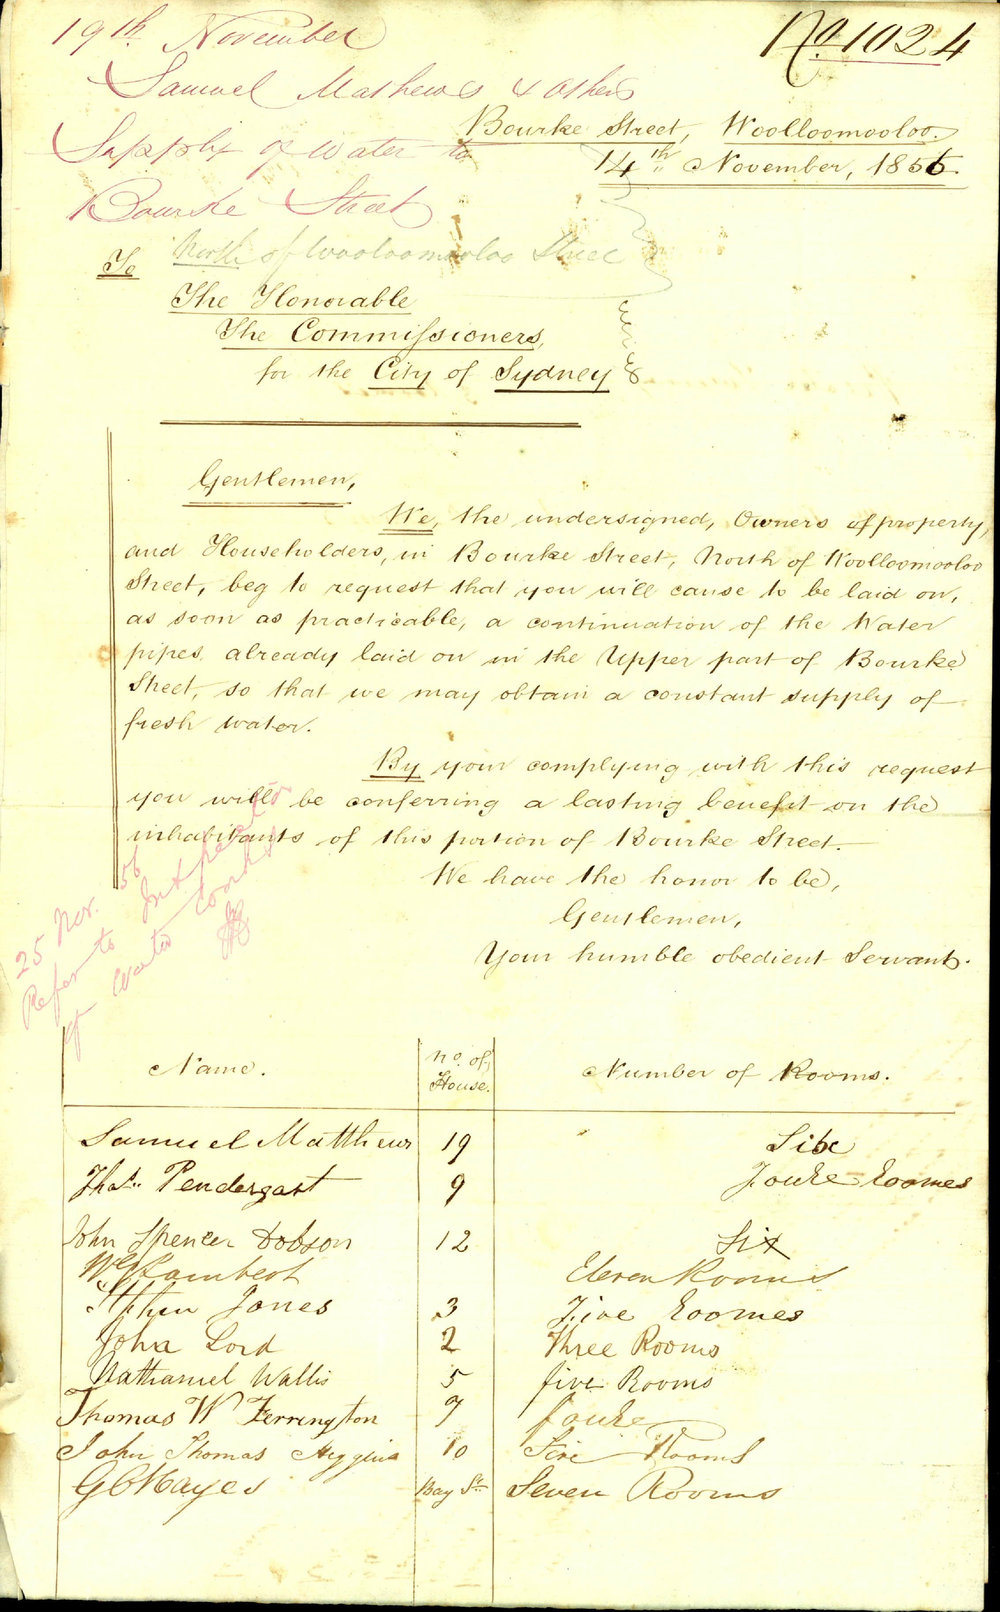 19th November
No. 1024
Samuel Mathews & others
Bourke Street, Woolloomooloo.
Supply of Water to
14th November, 1856.
Bourke Street
North of Wooloomooloo Street
To
The Honorable
The Commissioners,
for the City of Sydney
Gentlemen,
We, the undersigned, Owners of property,
and Householders, in Bourke Street, North of Woolloomooloo
Street, beg to request that you will cause to be laid on,
as soon as practicable, a continuation of the Water
pipes already laid on in the Upper part of Bourke
Street, so that we may obtain a constant supply of
fresh water.
By your complying with this request
you will be conferring a lasting benefit on the
inhabitants of this portion of Bourke Street.
We have the honor to be,
Gentlemen,
Your humble obedient Servants.
25 Nov. 56
Refer to Inspector
of Water Works
Name. No. of House. Number of Rooms.
Samuel Matthews 19 Six
Thos. Pendergast 9 Foure Roomes
John Spencer Dobson 12 Six
Wm Lambert Eleven Rooms
Stphen Jones 3 Five Roomes
John Lord 2 Three Rooms
Nathaniel Wallis 5 five Rooms
Thomas W Ferrington 7 foure
John Thomas Higgins 10 Rooms
G C Hayes Bay St. Seven Rooms